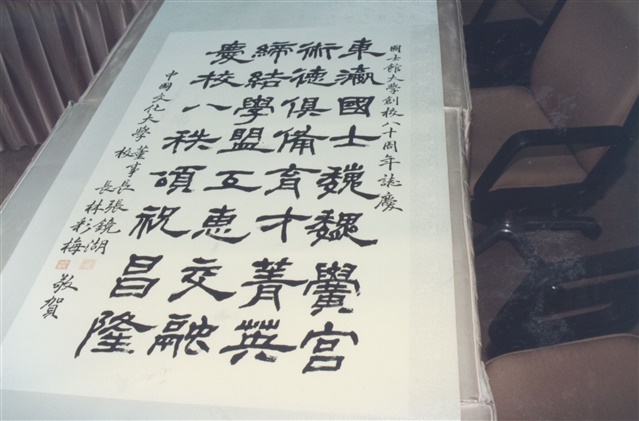 國士館大學創校八十周年誌慶
東瀛國士巍巍黌宮
術德俱備育才菁英
締結學盟互惠交融
慶校八秩頌祝昌隆
中國文化大學董事長張鏡湖
校長林彩梅
敬賀